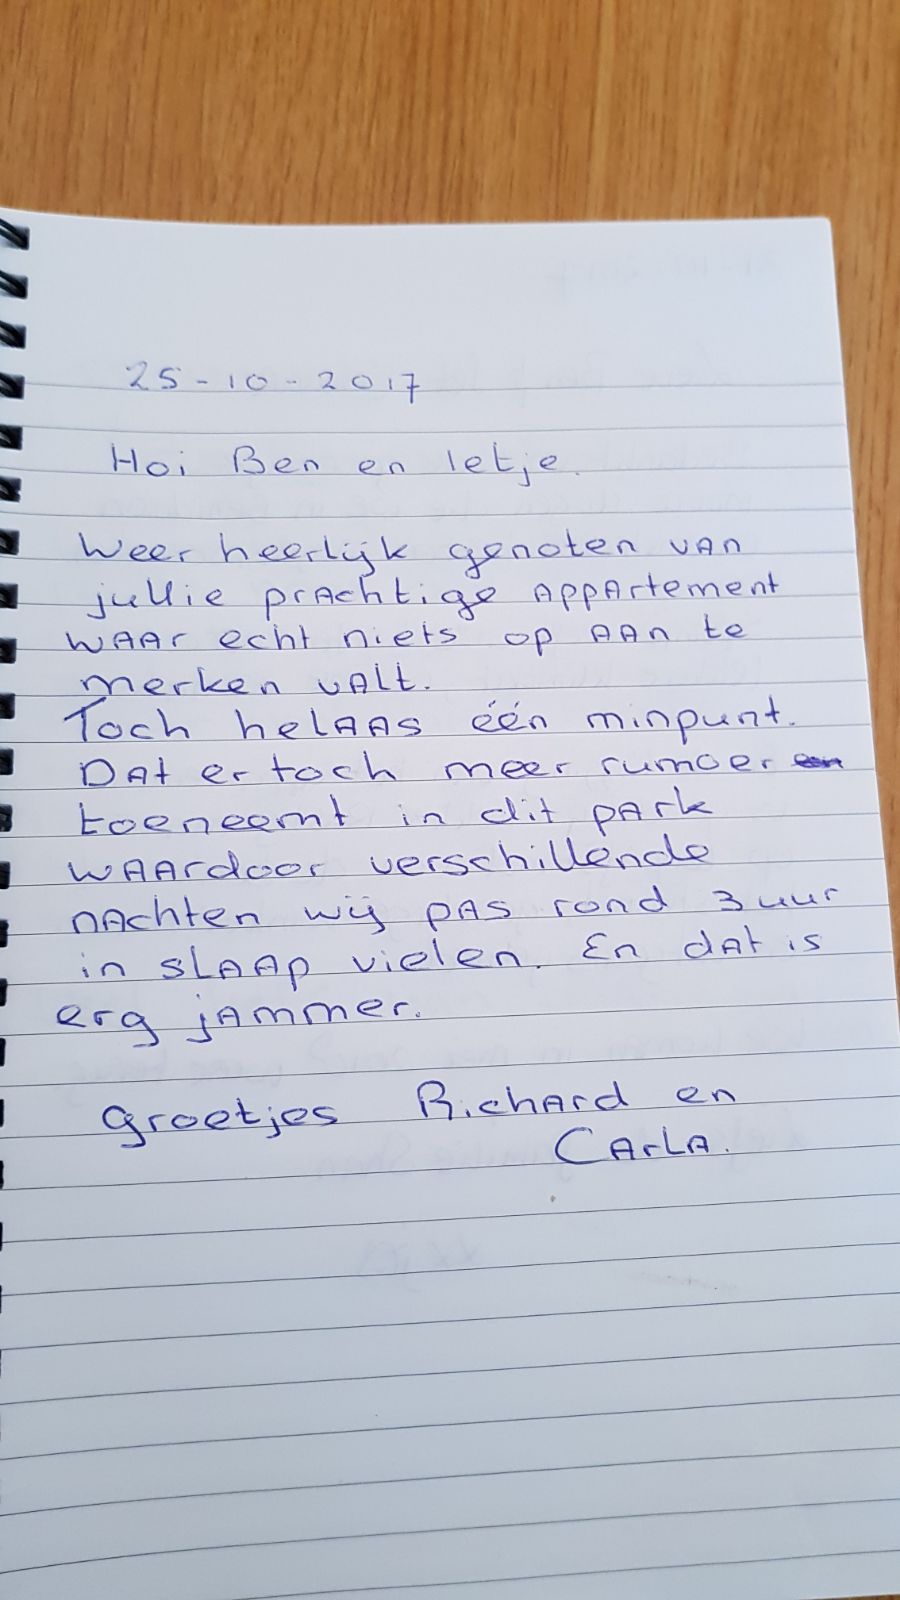 25-10-2017
Hoi Ben en Ietje.
Weer heerlijk genoten van
jullie prachtige appartement
waar echt niets op aan te
merken valt.
Toch helaas één minpunt.
Dat er toch meer rumoer
toeneemt in dit park
waardoor verschillende
nachten wij pas rond 3 uur
in slaap vielen. En dat is
erg jammer.
Groetjes Richard en
Carla.